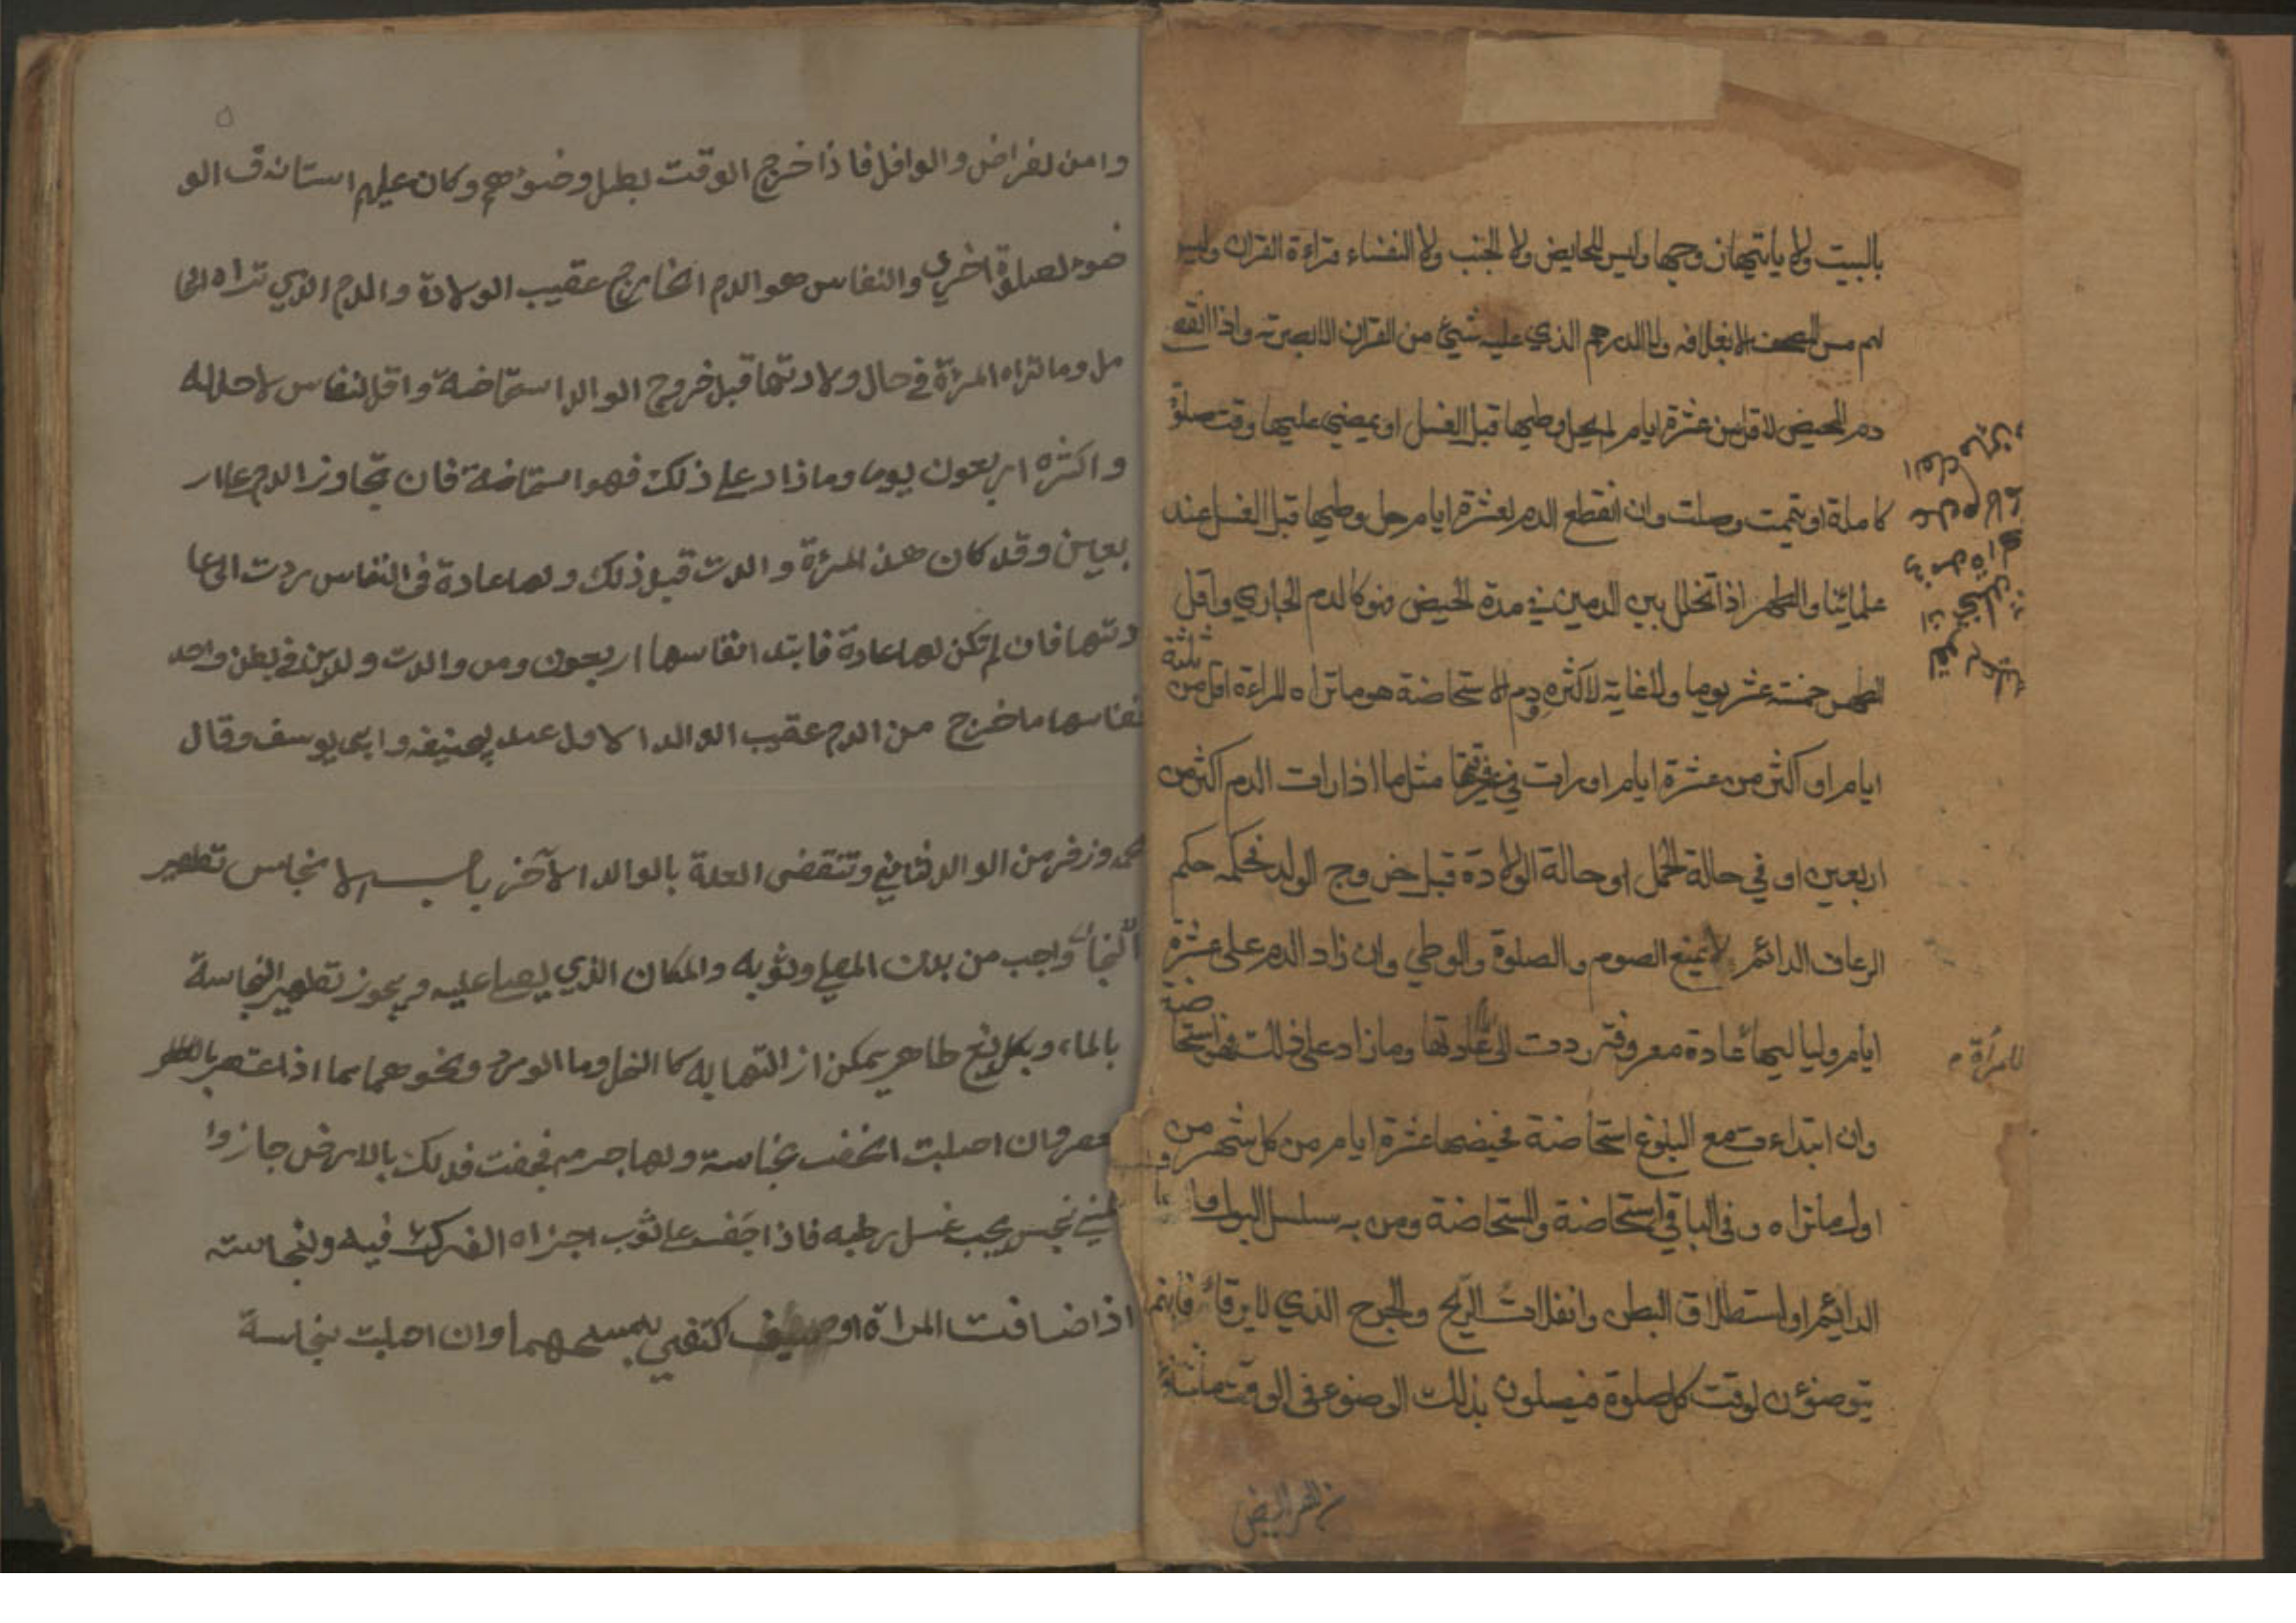 بالبيت ولا ياتيها زوجها وليس للحايض ولا الجنب ولا النفساء قراءة القران وليس
لهم مس المصحف الا بغلافه ولا الدرهم الذي عليه شيئ من القران الا بصرته واذا انقطع
دم الحيض لاقل من عشرة ايام لم يحل وطيها قبل الغسل او يمضي عليها وقت صلوة
كاملة او تيممت وصلت وان انقطع الدم لعشرة ايام حل وطيها قبل الغسل عند
علمائنا والطهر اذا تخلل بين الدمين في مدة الحيض فهو كالدم الجاري واقل
الطهر خمسة عشر يوما ولا غاية لاكثره ودم الاستحاضة هو ما تراه المراءة اقل من ثلثة
ايام او اكثر من عشرة ايام او رات في مثل ما اذا رات الدم اكثر من
اربعين او في حالة الحمل او حالة الولادة قبل خروج الولد فحكمه حكم
الرعاف الدائم لا يمنع الصوم والصلوة والوطي وان زاد الدم على عشرة
ايام ولياليها عادة معروفة ردت الى عادتها وما زاد على ذلك فهو استحاضة
للمرأة
وان ابتداءت مع البلوغ استحاضة فحيضها عشرة ايام من كل شهر من
اول ما تراه وفى الباقي استحاضة والمستحاضة ومن به سلسل البول
الدائيم او استطلاق البطن وانفلات الريح والجرح الذي لا يرقأ فانهم
يتوضؤن لوقت كل صلوة فيصلون بذلك الوضوء فى الوقت
من الفرايض
٥
وا من لفراض والوافل فاذا خرج الوقت بطل وضؤهم وكان عليهم استانف الو
ضوء لصلوة اخري والنفاس هو الدم الخارج عقيب الولادة والدم الذي تراه الحا
مل وما تراه المرئة في حال ولادتها قبل خروج الوالد استحاضة واقل النفاس لا حد له
واكثره اربعون يوما وما زاد على ذلك فهو استحاضة فان تجاوز الدم على الار
بعين وقد كان هذ المرئة والدت قبل ذلك ولها عادة فى النفاس ردت الى عا
دتها فان لم تكن لها عادة فابتداء نفاسها اربعون ومن والدت ولدين في بطن واحد
نفاسها ما خرج من الدم عقيب الوالد الاول عند بحنيفه وابي يوسف وقال
محمد وزفر من الوالد الثاني وتنقضى العدة بالوالد الآخر باب الانجاس تطهير
النجاسة واجب من بدن المصلي وثوبه والمكان الذي يصلي عليه ويجوز تطهير النجاسة
بالماء وبكل مايع طاهر يمكن ازالتها به كا الخل وما الورد ونحوهما مما اذا عصر بالعصر
عصر وان اصابت الخف نجاسة ولها جرم فجفت فدلك بالارض جازوا
لمني نجس يجب غسل رطبه فاذا جفف على ثوب اجزاه الفرك فيه ولنجاسة
اذا ضافت المراة او كتفي بمسحهما وان اصابت نجاسة